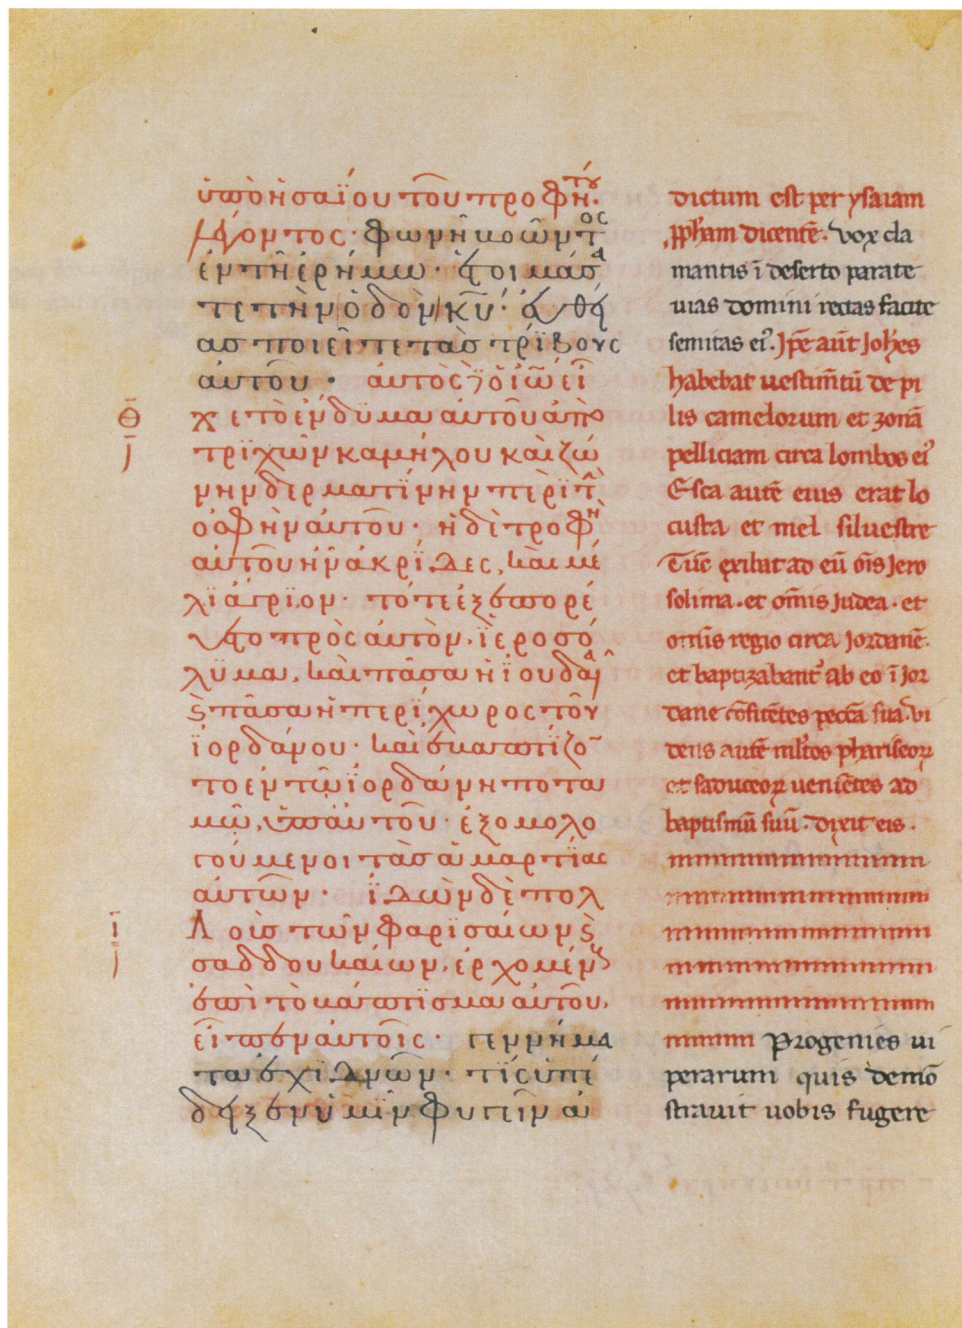 ὑπὸ ἠσαΐου τοῦ προφή
του
λέγοντος· φωνὴ βοῶντος
ἐν τῆ ἐρήμω· ἑτοιμάσα
τε τὴν ὁδὸν κ̅υ̅· εὐθεί
ασ ποιεῖτε τὰσ τρίβους
αὐτοῦ· αὐτὸς δὲ ὁ ἰω̅ εἶ
Θ
χε τὸ ἔνδυμα αὐτοῦ ἀπὸ
τριχῶν καμήλου καὶ ζώ
νην δερματίνην περὶ τὴν
ὀσφὴν αὐτοῦ· ἡ δὲ τροφὴ
αὐτοῦ ἦν ἀκρίδες, καὶ μέ
λι ἄγριον· τότε ἐξεπορε
ύετο πρὸς αὐτὸν, ἱεροσό
λυμα, καὶ πᾶσα ἡ ἰουδαία
ϛ πᾶσα ἡ περίχωρος τοῦ
ἰορδάνου· καὶ ἐβαπτίζον
το ἐν τῶ ἰορδάνη ποτα
μῶ, ὑπ' αὐτοῦ· ἐξομολο
γούμενοι τὰσ ἁμαρτίας
αὐτῶν· ἰδὼν δὲ πολ
ι
λοὶσ τῶν φαρισαίων ϛ
σαδδουκαίων, ἐρχομένους
ἐπὶ τὸ βάπτισμα αὐτοῦ,
εἶπεν αὐτοῖς· γεννήμα
τα ἐχιδνῶν· τίς ὑπέ
δειξεν ὑμῖν φυγεῖν ἀ
dictum est per ysaiam
ꝓph̅am dicente̅. vox cla
mantis i̅ deserto parate
uias domini rectas facite
semitas ei᾽. Ip̅e aut̅ Joh̅es
habebat uestim̅tu̅ de pi
lis camelorum et zona̅
pelliciam circa lombos ei᾽
Esca aute̅ eius erat lo
custa et mel siluestre
Tu̅c exibat ad eu̅ om̅is Jero
solima. et om̅is Iudea. et
omnis regio circa Jordane̅.
et baptizabant᾽ ab eo i̅ Jor
dane co̅fite̅tes pecc̅a sua. vi
dens aute̅ m̅ltos phariseoꝝ
et saduceoꝝ uenie̅tes ad
baptismu̅ suu̅. dixit eis.
Progenies ui
perarum quis demo̅
strauit uobis fugere